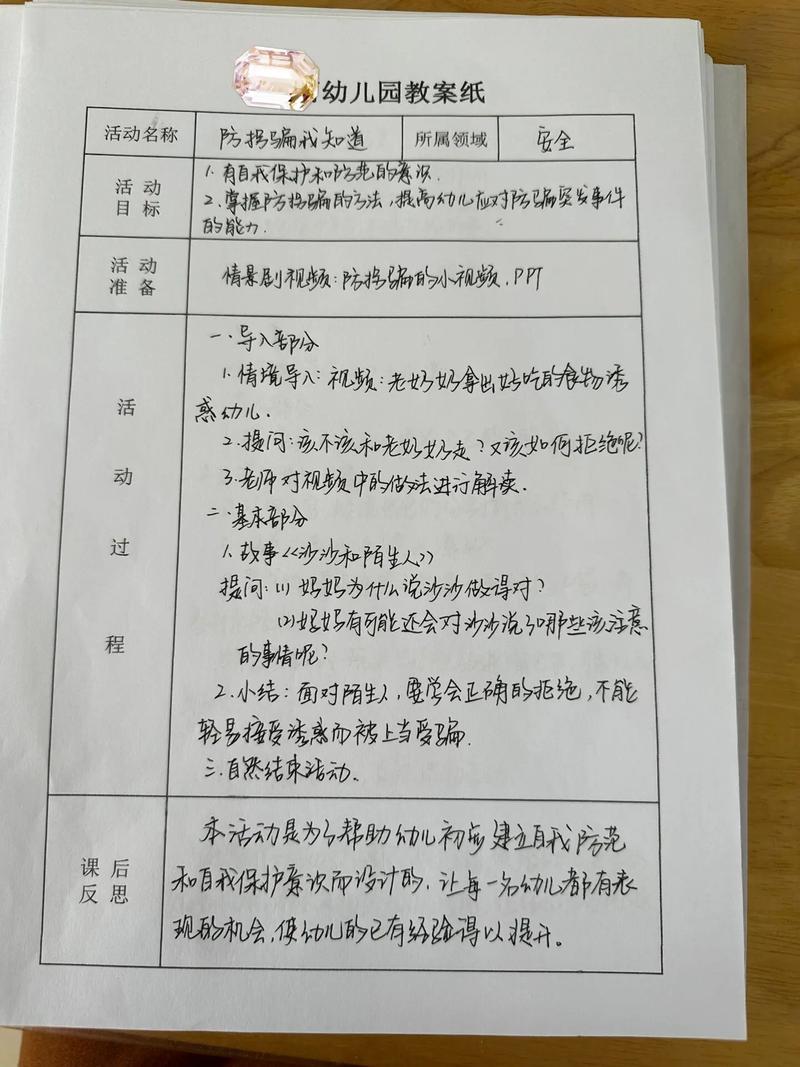 幼儿园教案纸
活动名称 防拐骗我知道 所属领域 安全
活动
目标
1.有自我保护和防范的意识.
2.掌握防拐骗的方法,提高幼儿应对防骗突发事件
的能力.
活动
准备
情景剧视频:防拐骗的小视频,PPT
活动过程
一.导入部分
1.情境导入:视频:老奶奶拿出好吃的食物诱
惑幼儿.
2.提问:该不该和老奶奶走?又该如何拒绝呢?
3.老师对视频中的做法进行解读.
二.基本部分
1.故事<<沙沙和陌生人>>
提问:(1)妈妈为什么说沙沙做得对?
(2)妈妈有可能还会对沙沙说了哪些该注意
的事情呢?
2.小结:面对陌生人,要学会正确的拒绝,不能
轻易接受诱惑而被上当受骗.
三.自然结束活动.
课后
反思
本活动是为了帮助幼儿初步建立自我防范
和自我保护意识而设计的,让每一名幼儿都有表
现的机会,使幼儿的已有经验得以提升。